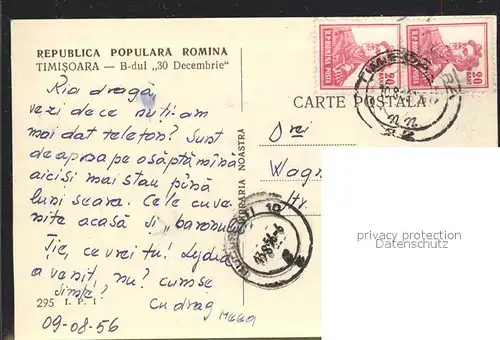 REPUBLICA POPULARA ROMINA
TIMIȘOARA — B-dul „30 Decembrie"
Ria dragă,
vezi de ce nu ți-am
mai dat telefon? Sunt
de aproape o săptămînă
aici si mai stau pînă
luni seara. Cele cuve-
nite acasă și „baronu
Ție, ce vrei tu! Lydia
a venit, nu? cum se
simte?
Cu drag
09-08-56
295 I. P. 1
LIBRARIA NOASTRA
CARTE POSTALA
R.P.ROMINA POSTA
20
BANI
R.P.ROMINA POSTA
20
BANI
TIMISOARA
BUCURESTI 10
D-rei
Wagn
Str.
privacy protection
Datenschutz